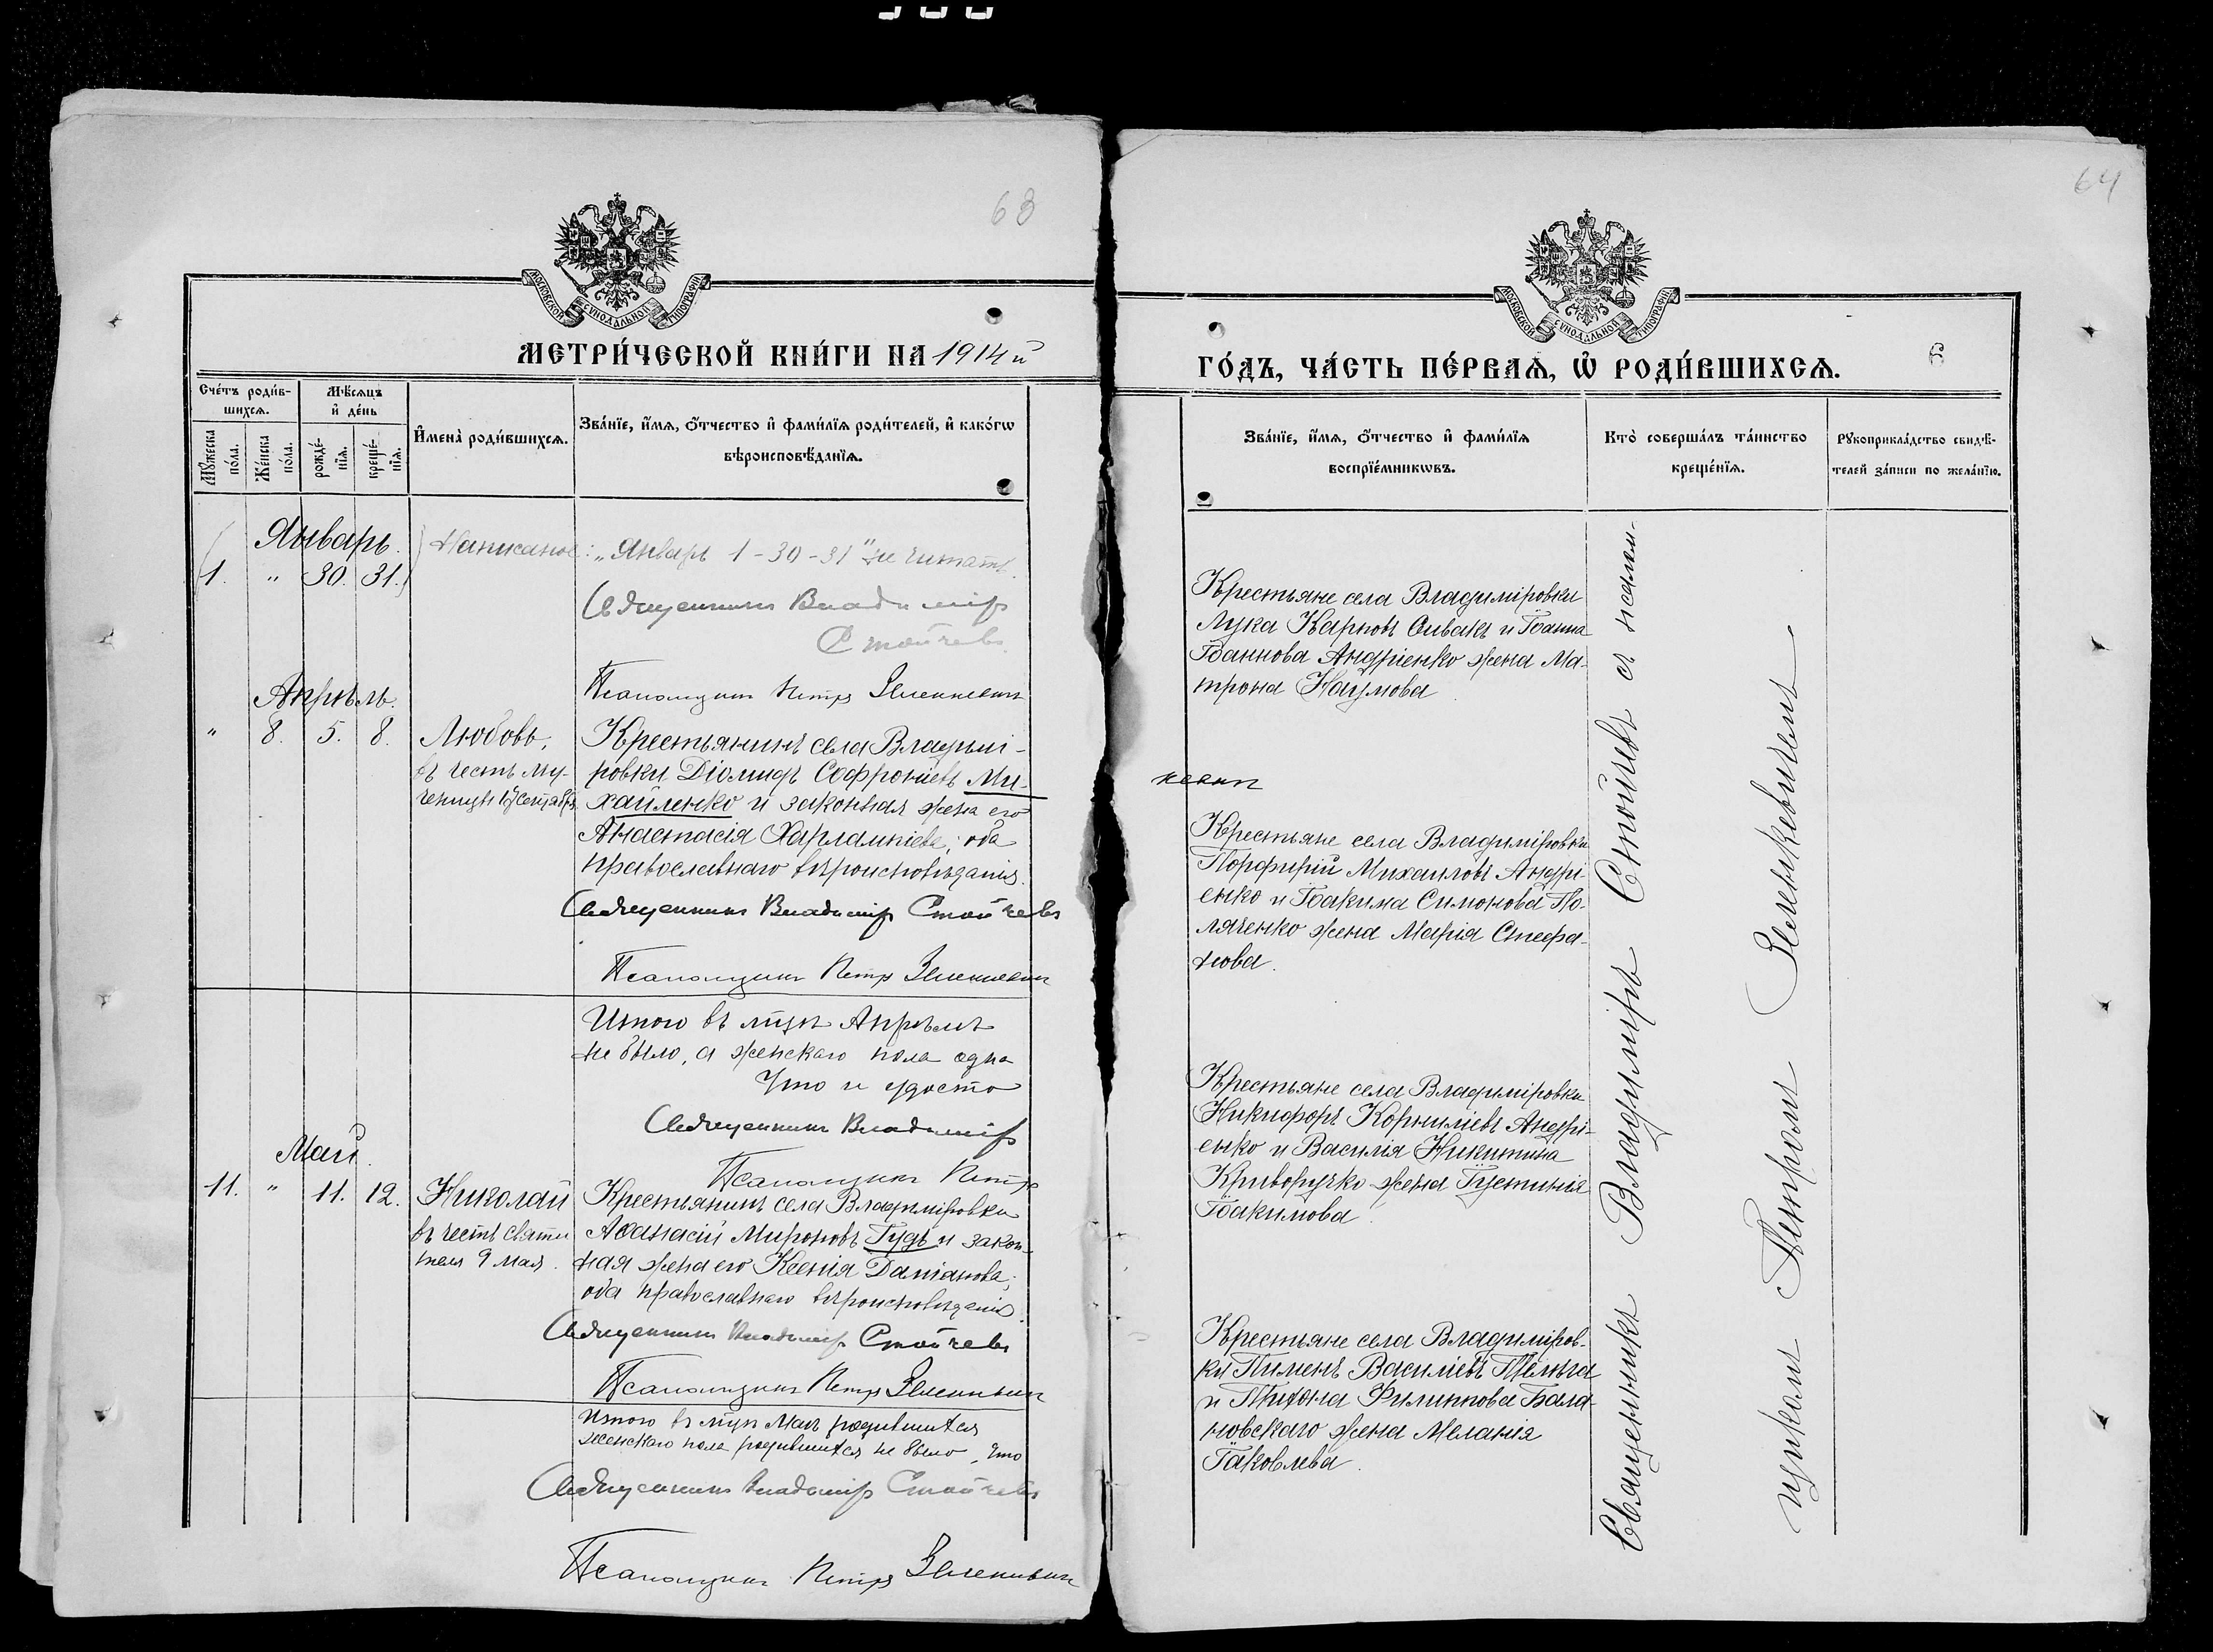 63
МОСКОВСКОЙ СУНОДАЛЬНОЙ ТИПОГРАФІИ
МЕТРИ́ЧЕСКОЙ КНИ́ГИ НА 1914й
Сче́тъ роди́в-
шихсѧ.
Мѣ́сѧцъ
и҆ де́нь
И҆мена̀ роди́вшихсѧ.
Зва́нїе, и҆́мѧ, ѻ҆́тчество и҆ фами́лїѧ роди́телей, и҆ како́гѡ
вѣроисповѣ́данїѧ.
Мꙋ́жеска
по́ла.
Же́нска
по́ла.
рожде́-
нїѧ.
креще́-
нїѧ.
Январь.
1. " 30. 31.
Написаное: „Январь 1-30-31" не читать.
Священникъ Владиміръ
Стойчевъ
Псаломщикъ Петръ Зеленкевичъ
Апрѣль.
" 8. 5. 8. Любовь,
въ честь му-
ченицы 17 Сентября.
Крестьянинъ села Владимі-
ровки Діомидъ Софроніевъ Ми-
хайленко и законная жена его
Анастасія Харлампіева; оба
православнаго вѣроисповѣданія.
Священникъ Владиміръ Стойчевъ
Псаломщикъ Петръ Зеленкевичъ
Итого въ мцѣ Апрѣлѣ
не было, а женскаго пола одна
Что и удосто
Священникъ Владиміръ
Псаломщикъ Петръ
Май.
11. " 11. 12. Николай
въ честь святи
теля 9 мая.
Крестьянинъ села Владиміровки
Аѳанасій Мироновъ Гудь и закон-
ная жена его Ксенія Даміанова;
оба православнаго вѣроисповѣданія.
Священникъ Владиміръ Стойчевъ
Псаломщикъ Петръ Зеленкевичъ
Итого въ мцѣ Маѣ родившихся
женскаго пола родившихся не было, что
Священникъ Владиміръ Стойчевъ
Псаломщикъ Петръ Зеленкевичъ
64
МОСКОВСКОЙ СУНОДАЛЬНОЙ ТИПОГРАФІИ
ГО́ДЪ, ЧА́СТЬ ПЕ́РВАѦ, Ѡ҆ РОДИ́ВШИХСѦ.
Зва́нїе, и҆́мѧ, ѻ҆́тчество и҆ фами́лїѧ
воспрїе́мникѡвъ.
Кто̀ соверша́лъ та́инство
креще́нїѧ.
Рꙋкоприкла́дство свидѣ́-
телей за́писи по жела́нїю.
Крестьяне села Владиміровки
Лука Карповъ Сивакъ и Іоанна
Іоаннова Андріенко жена Ма-
трона Наумова.
Крестьяне села Владиміровки
Порфирій Михаиловъ Андрі-
енко и Іоакима Симонова По-
ляченко жена Марія Стефа-
нова.
Крестьяне села Владиміровки
Никифоръ Корниліевъ Андрі-
енко и Василія Никитина
Криворучко жена Іустинія
Іоакимова.
Крестьяне села Владиміров-
ки Пименъ Василіевъ Телѣга
и Тихона Филиппова Бала-
новскаго жена Меланія
Іаковлева.
Священникъ Владиміръ Стойчевъ съ псалом-
щикомъ Петромъ Зеленкевичемъ